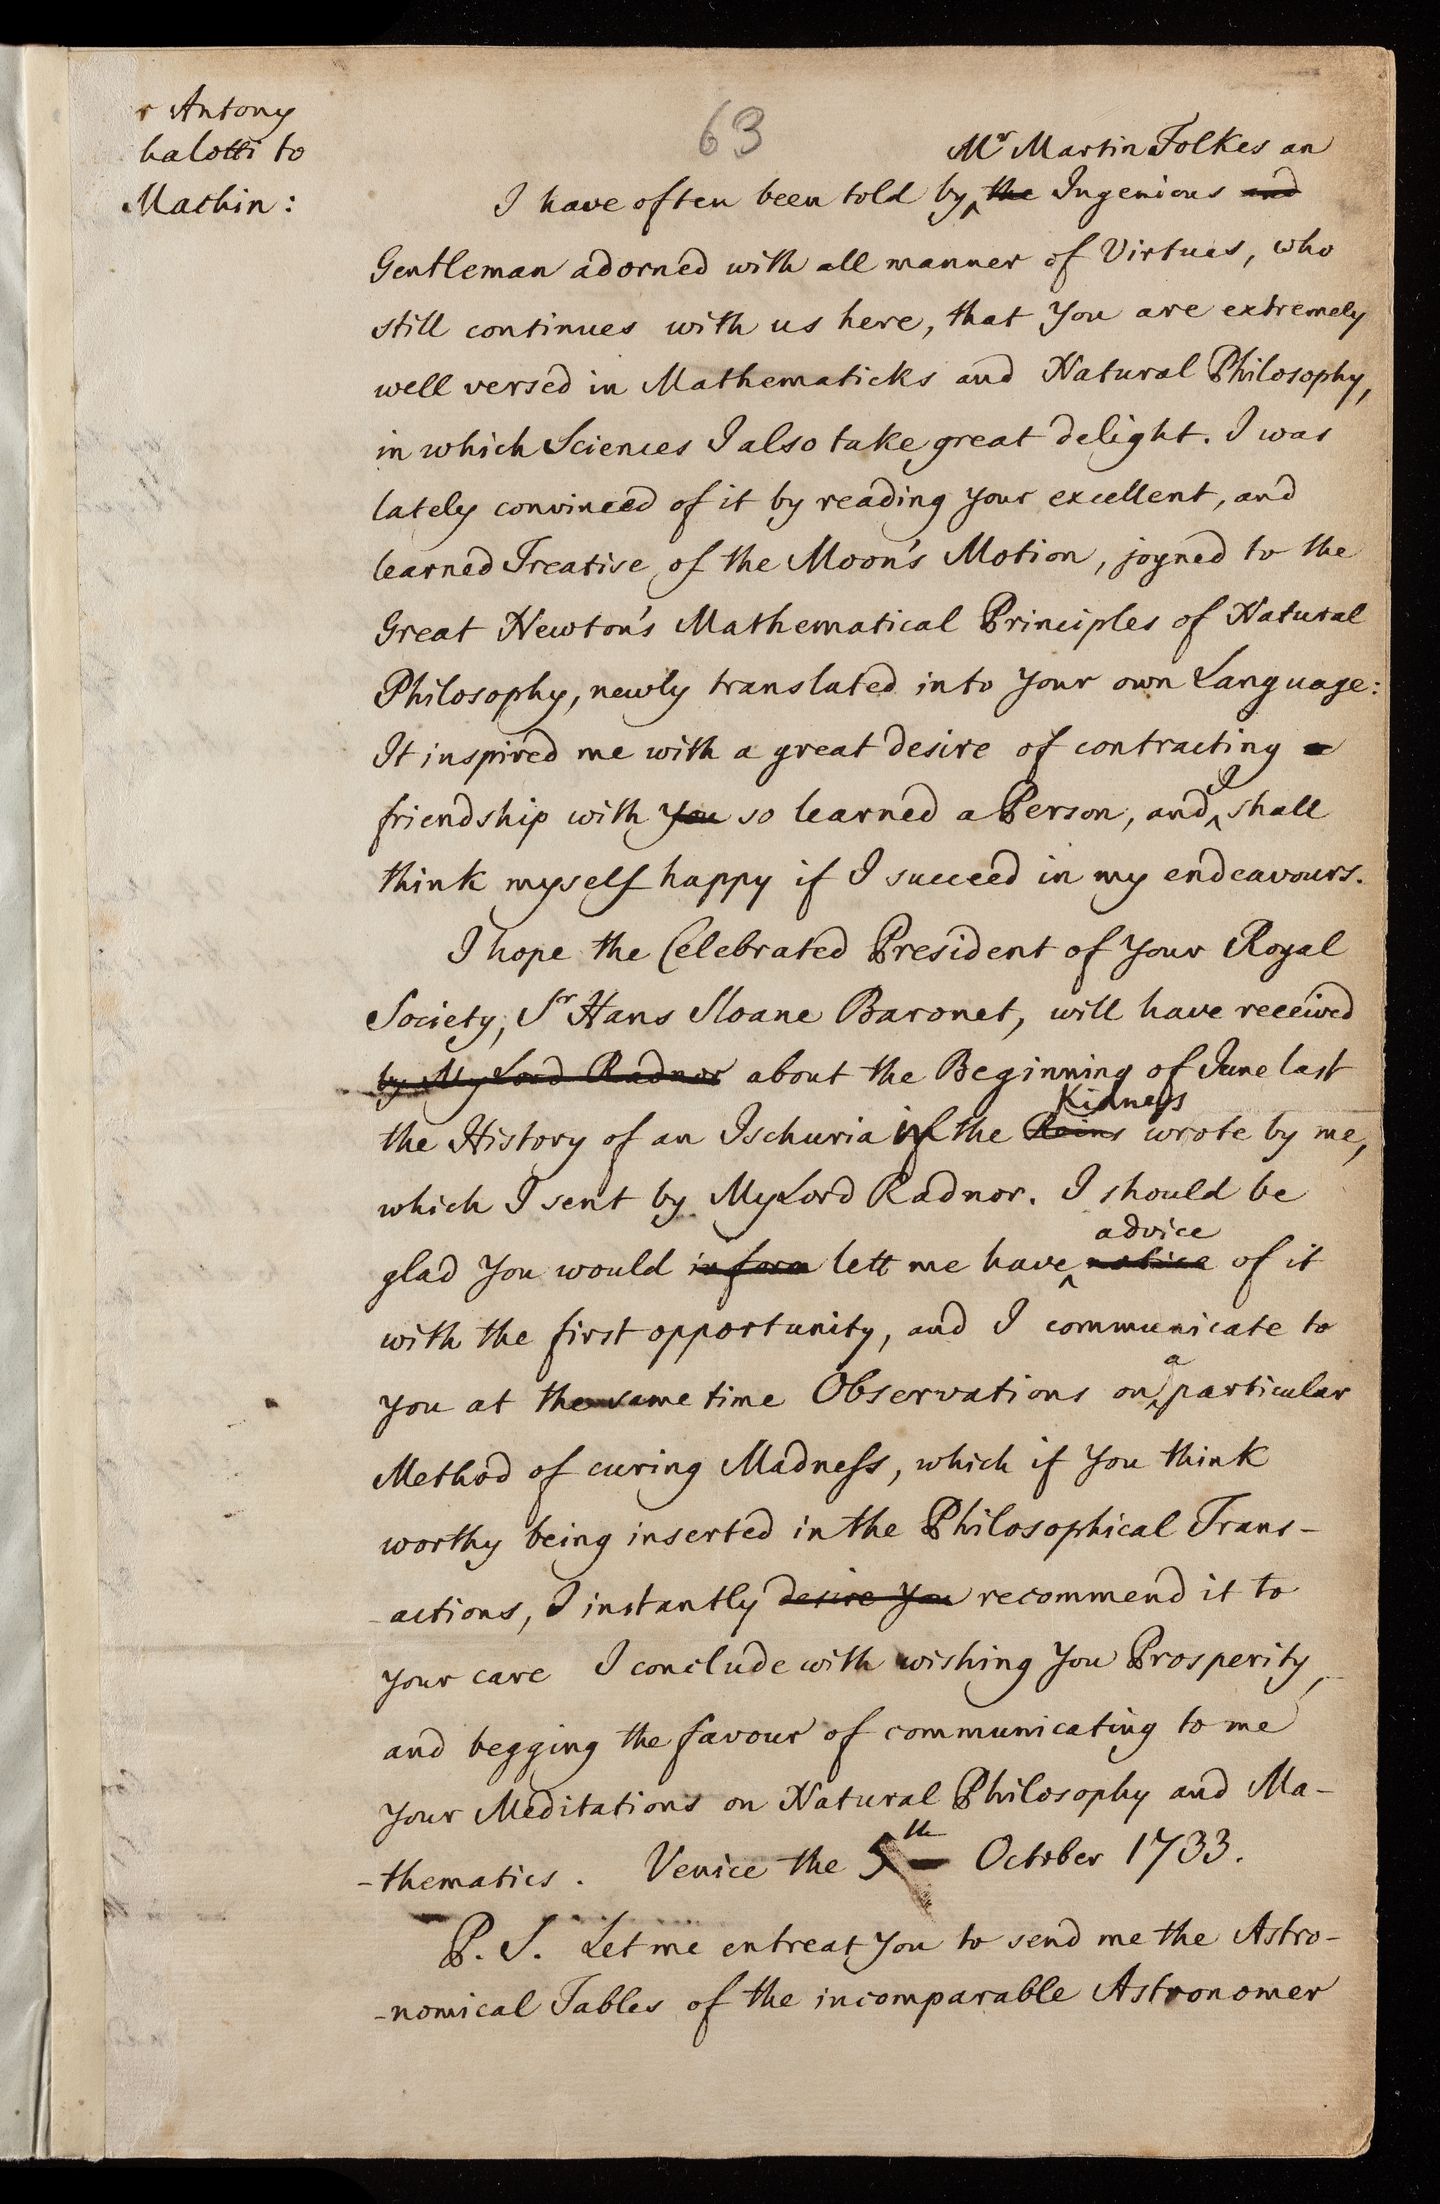 r Antony
halotti to
Machin:
63
Mr Martin Folkes an
I have often been told by the Ingenious and
Gentleman adorned with all manner of Virtues, who
still continues with us here, that You are extremely
well versed in Mathematicks and Natural Philosophy,
in which Sciences I also take great delight. I was
lately convinced of it by reading your excellent, and
learned Treatise of the Moon's Motion, joyned to the
Great Newton's Mathematical Principles of Natural
Philosophy, newly translated into Your own Language:
It inspired me with a great desire of contracting a
I
friendship with you so learned a Person, and shall
think myself happy if I succeed in my endeavours.
I hope the Celebrated President of Your Royal
Society, Sr Hans Sloane Baronet, will have received
by My Lord Radnor about the Beginning of June last
Kidneys
the History of an Ischuria of the Reins wrote by me,
which I sent by My Lord Radnor. I should be
advice
glad You would inform lett me have notice of it
with the first opportunity, and I communicate to
a
you at the same time Observations on particular
Method of curing Madness, which if You think
worthy being inserted in the Philosophical Trans-
-actions, I instantly desire You recommend it to
your care I conclude with wishing You Prosperity,
and begging the favour of communicating to me
Your Meditations on Natural Philosophy and Ma-
-thematics. Venice the 5th October 1733.
P. S. Let me entreat You to send me the Astro-
-nomical Tables of the incomparable Astronomer